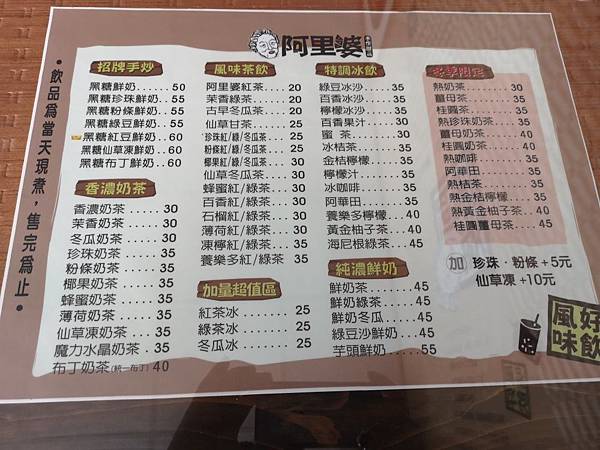 阿里婆
•飲品為當天現煮，售完為止•
招牌手炒
黑糖鮮奶......50
黑糖珍珠鮮奶..55
黑糖粉條鮮奶..55
黑糖綠豆鮮奶..55
黑糖紅豆鮮奶..60
黑糖仙草凍鮮奶..60
黑糖布丁鮮奶..60
香濃奶茶
香濃奶茶.....30
茉香奶茶.....30
冬瓜奶茶.....30
珍珠奶茶.....35
粉條奶茶.....35
椰果奶茶.....35
蜂蜜奶茶.....35
薄荷奶茶.....35
仙草凍奶茶...35
魔力水晶奶茶.35
布丁奶茶(統一布丁)40
風味茶飲
阿里婆紅茶....20
茉香綠茶......20
古早冬瓜茶....20
仙草甘茶......25
珍珠紅/綠/冬瓜茶...25
粉條紅/綠/冬瓜茶...25
椰果紅/綠/冬瓜茶...30
仙草冬瓜茶....30
蜂蜜紅/綠茶...30
百香紅/綠茶...30
石榴紅/綠茶...30
薄荷紅/綠茶...30
凍檸紅/綠茶...35
養樂多紅/綠茶..35
加量超值區
紅茶冰......25
綠茶冰......25
冬瓜冰......25
特調冰飲
綠豆冰沙....35
百香冰沙....35
檸檬冰沙....35
百香果汁....30
蜜 茶......30
冰桔茶......35
金桔檸檬....35
檸檬汁......35
冰咖啡......35
阿華田......35
養樂多檸檬..40
黃金柚子茶..40
海尼根綠茶..45
純濃鮮奶
鮮奶茶......45
鮮奶綠茶....45
鮮奶冬瓜....45
綠豆沙鮮奶..45
芋頭鮮奶....55
冬季限定
熱奶茶......30
薑母茶......30
桂圓茶......35
熱珍珠奶茶..35
薑母奶茶....40
桂圓奶茶....40
熱咖啡......35
阿華田......35
熱桔茶......35
熱金桔檸檬..35
熱黃金柚子茶..40
桂圓薑母茶..45
加 珍珠・粉條+5元
仙草凍+10元
好飲
風味